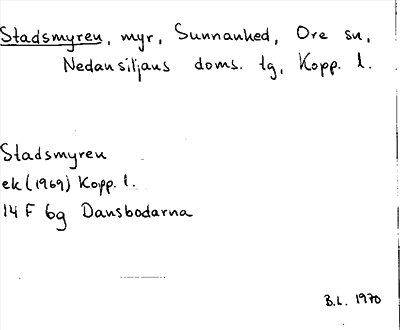 Stadsmyren, myr, Sunnanhed, Ore sn,
Nedansiljans doms. tg, Kopp. l.
Stadsmyren
ek (1969) Kopp. l.
14 F 6g Dansbodarna
B.L. 1970